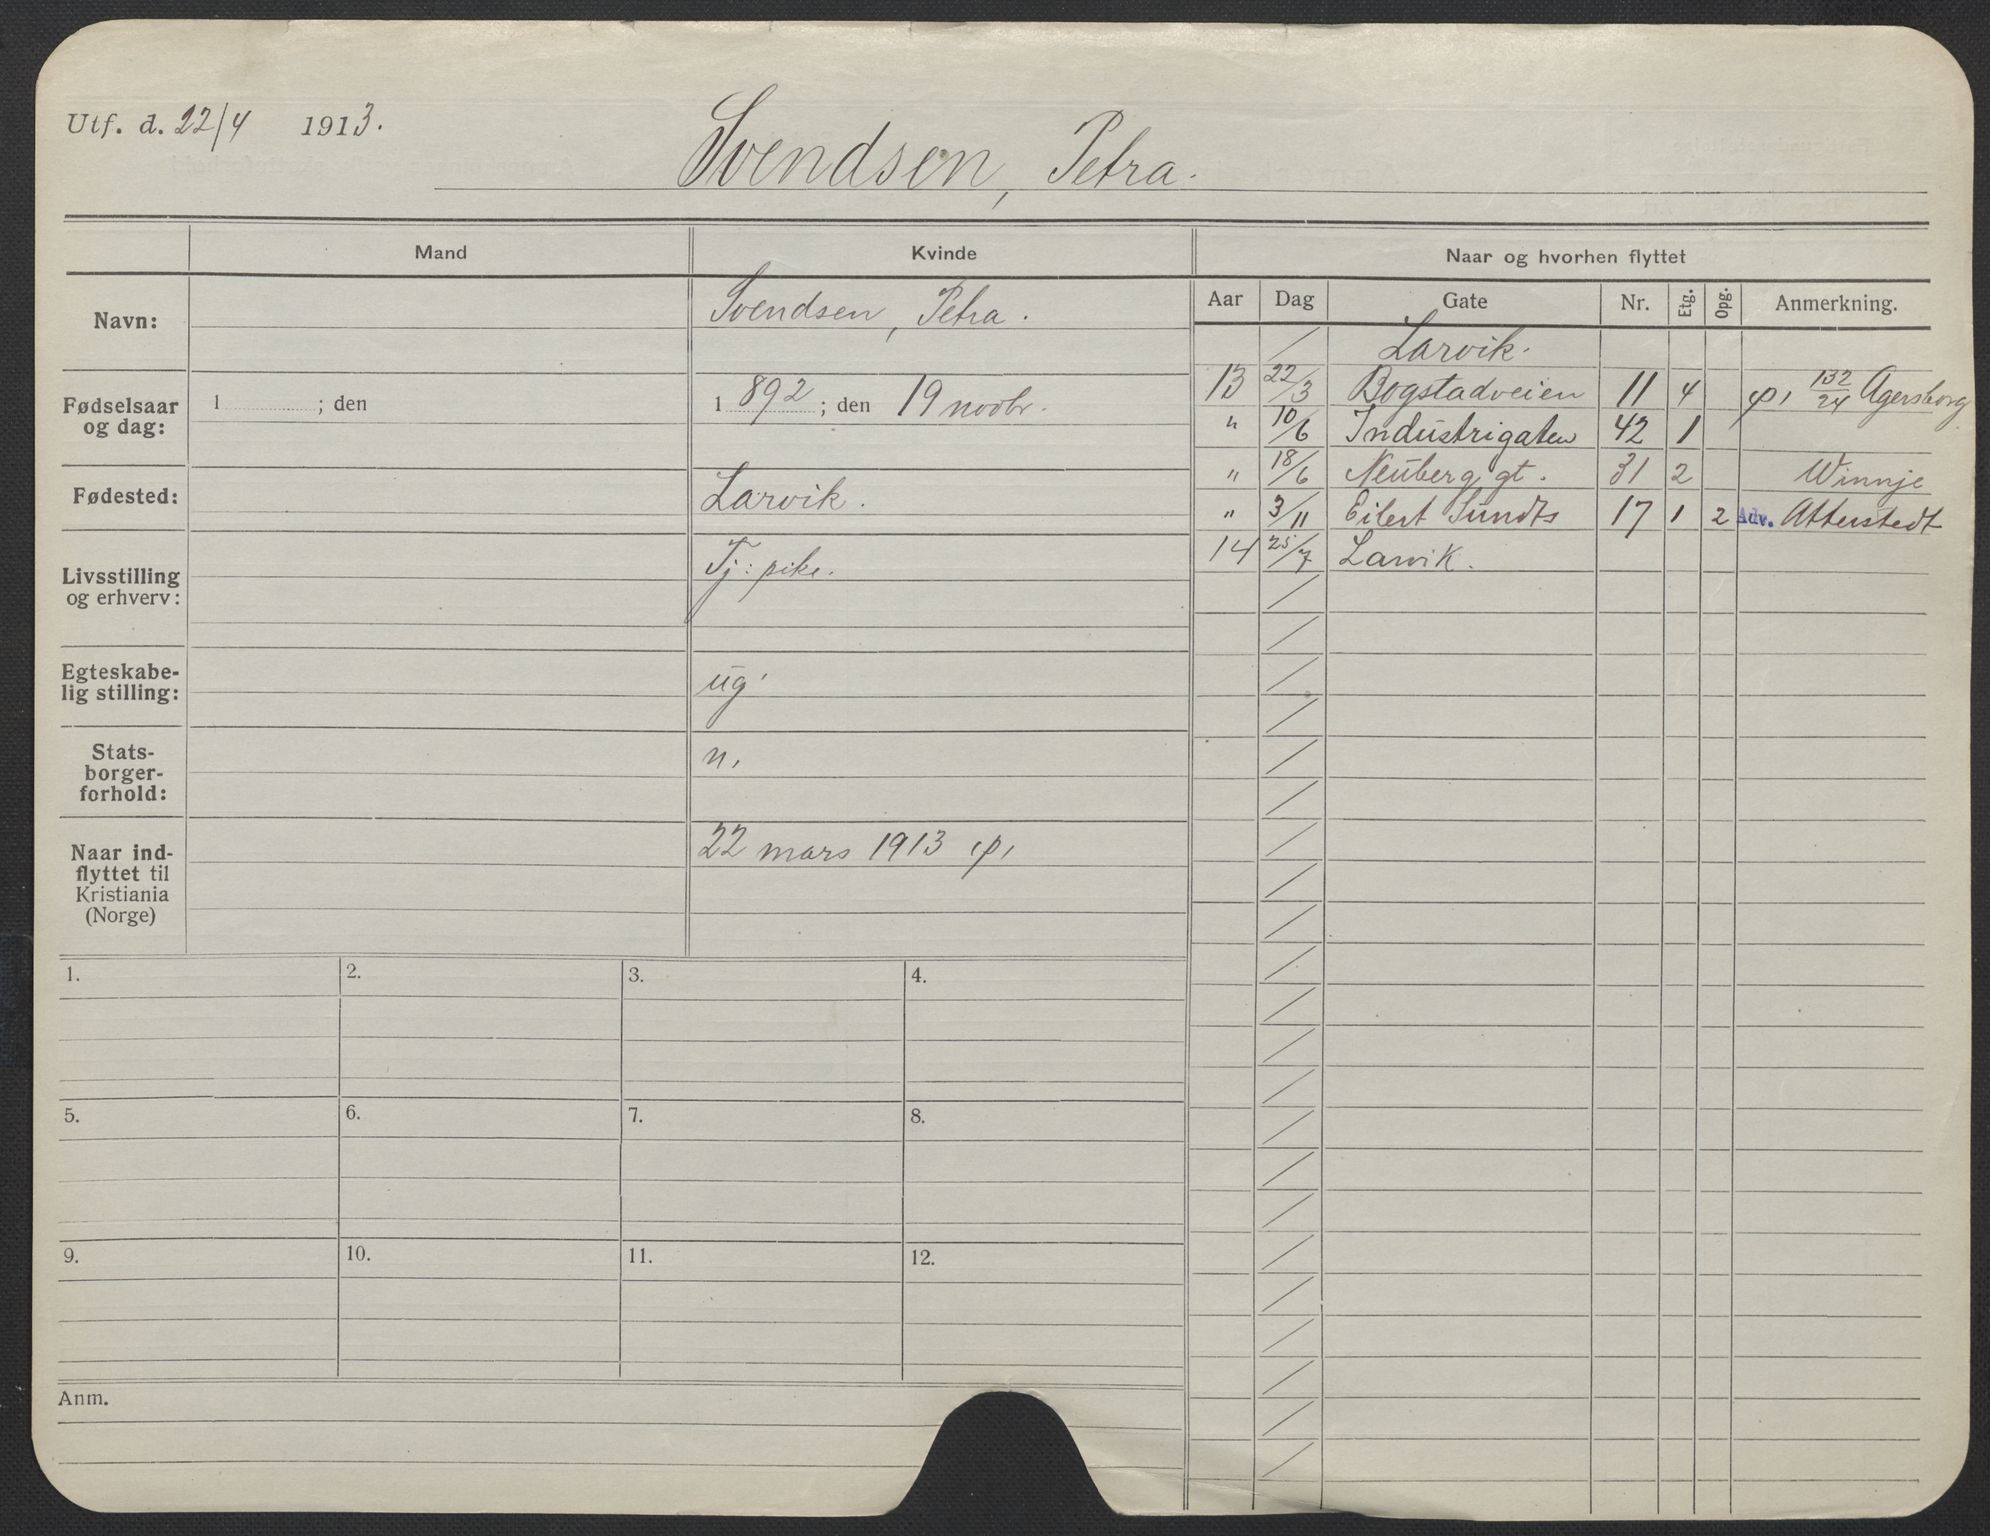 Utf. d. 22/4 1913.
Svendsen, Petra.
Mand Kvinde Naar og hvorhen flyttet
Aar Dag Gate Nr. Etg. Opg. Anmerkning.
Navn: Svendsen, Petra.
Fødselsaar og dag: 1 ; den 1892 ; den 19 novbr.
Fødested: Larvik.
Livsstilling og erhverv: Tj: pike.
Egteskabe-
lig stilling: ug
Stats-
borger-
forhold: n.
Naar ind-
flyttet til
Kristiania
(Norge) 22 mars 1913 φ,
/ Larvik.
13 22/3 Bogstadveien 11 4 φ, 132/24 Agersborg
" 10/6 Industrigaten 42 1
" 18/6 Neuberg gt. 31 2 Winnje
" 3/11 Eilert Sundts 17 1 2 Adv. Atterstedt
14 25/7 Larvik.
1. 2. 3. 4.
5. 6. 7. 8.
9. 10. 11. 12.
Anm.